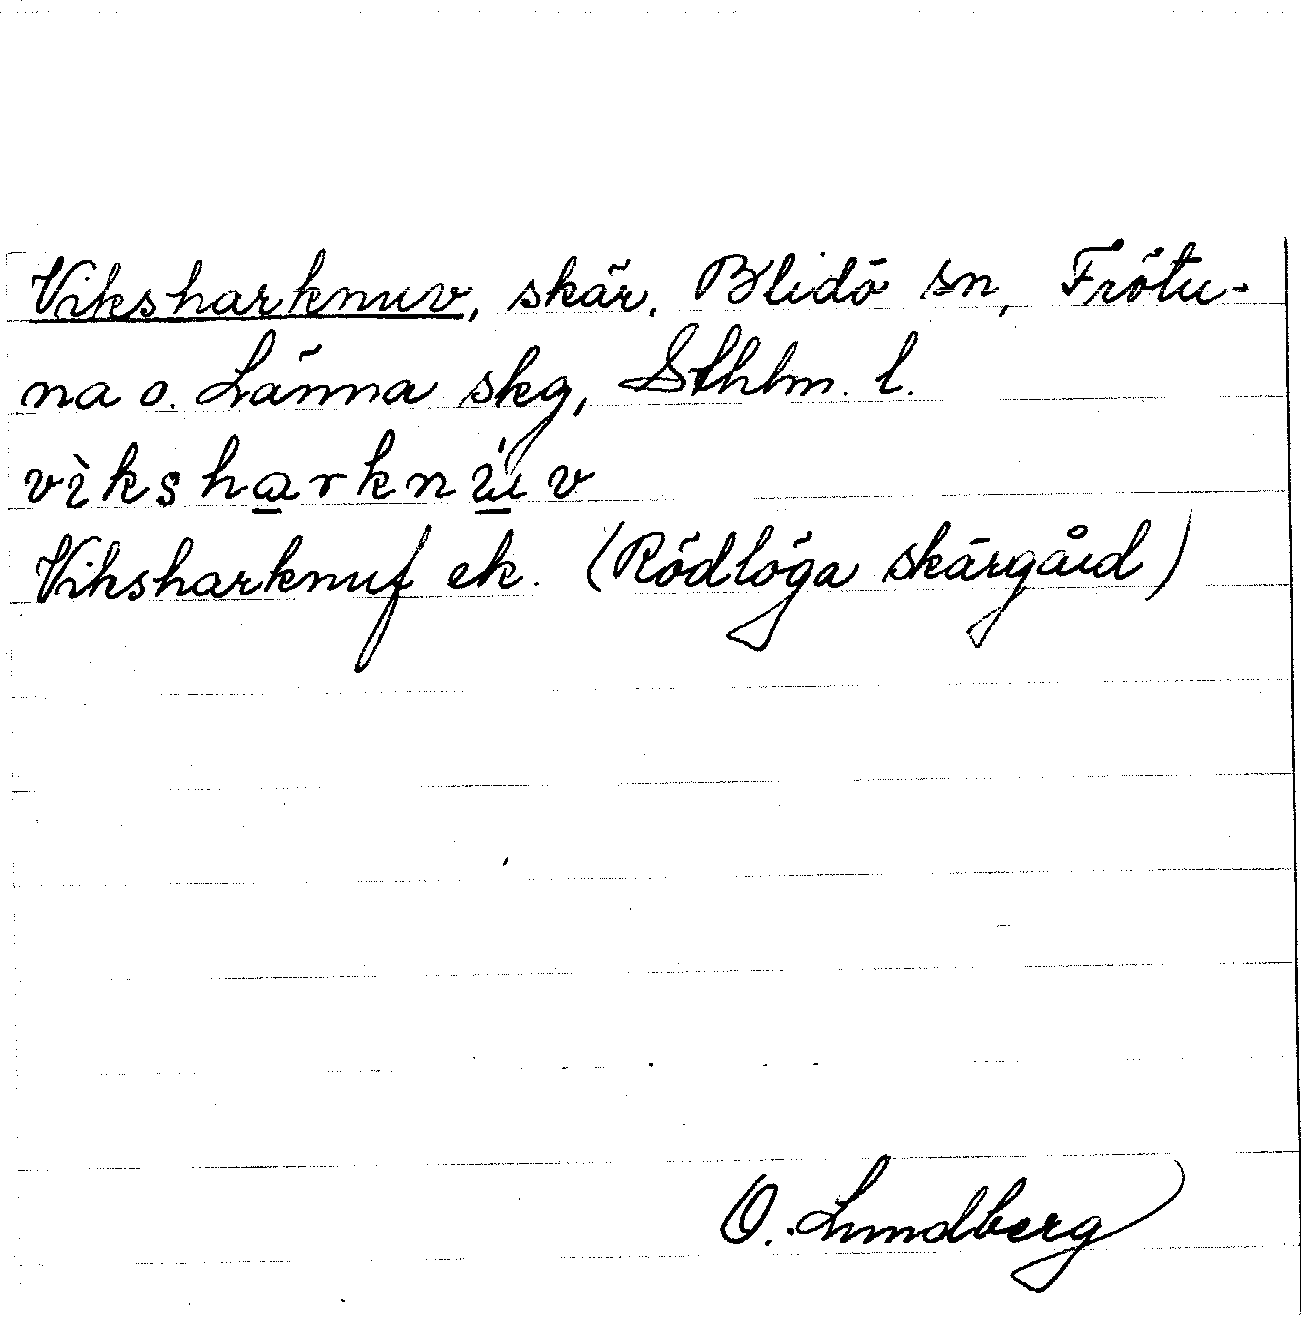 Viksharknuv, skär. Blidö sn, Frötu-
na o. Länna skg, Sthlm. l.
vìksha̲rknú̲v
Viksharknuf ek. (Rödlöga skärgård)
O. Lundberg